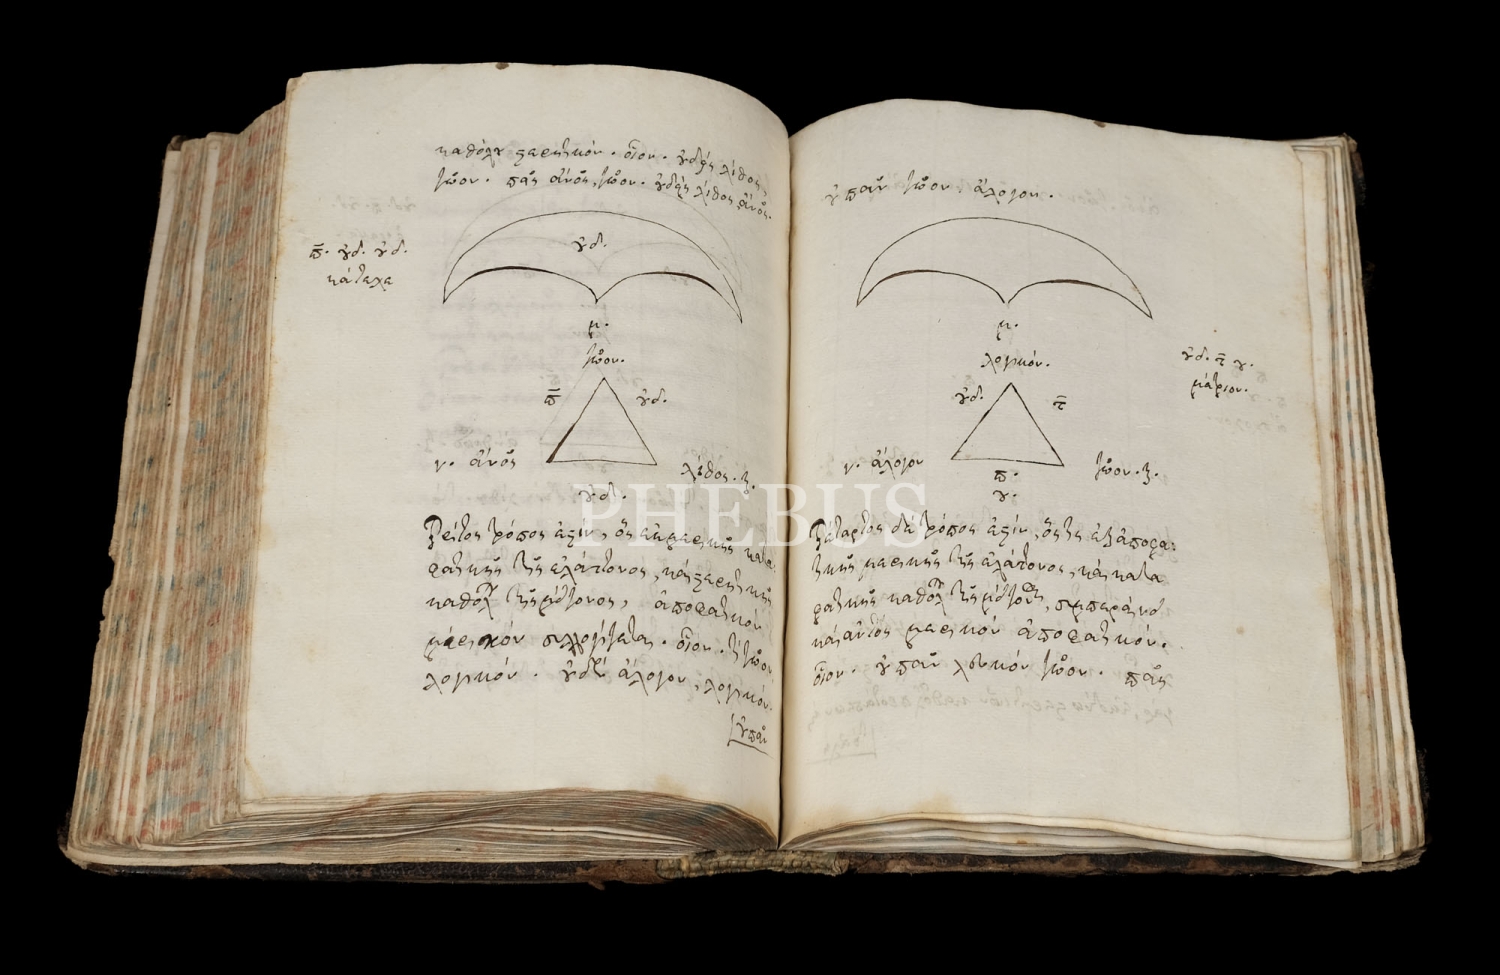 καθόλου στερητικόν · οἷον · οὐδείς λίθος,
ζῶον · πᾶς ἄνος, ζῶον · οὐδείς λίθος ἄνος.
π̅ · οὐδ · οὐδ ·
κάτεχε
οὐδ ·
μ ·
ζῶον ·
π̅
οὐδ ·
ν · ἄνος
λίθος · ξ ·
οὐδ ·
Τρίτος τρόπος ἐστίν, ὃς ἐκ μερικῆς κατα
φατικῆς τῆς ἐλάττονος, καὶ στερητικῆς
καθόλου τῆς μείζονος, ἀποφατικόν
μερικόν συλλογίζεται · οἷον · τὶ ζῶον
λογικόν · οὐδέν ἄλογον, λογικόν ·
οὐ πᾶν
οὐ πᾶν ζῶον, ἄλογον ·
μ ·
λογικόν ·
οὐδ · τ̅ οὐ ·
μέτριον ·
οὐδ ·
τ̅
ν · ἄλογον
ζῶον · ξ ·
π ·
οὐ ·
PHEBUS
Τέταρτος δὲ τρόπος ἐστίν, ὅστις ἐξ ἀποφα
τικῆς μερικῆς τῆς ἐλάττονος, καὶ κατα
φατικῆς καθόλου τῆς μείζονος, συμπεραίνει
καὶ αὐτός μερικόν ἀποφατικόν ·
οἷον · οὐ πᾶν λευκόν ζῶον · πᾶς